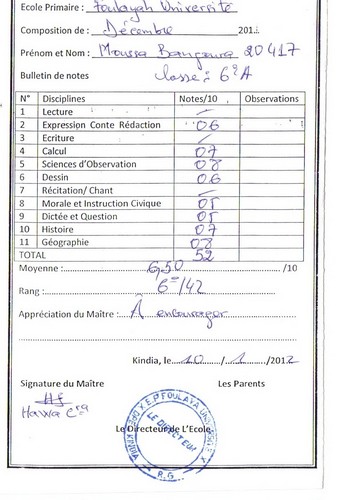 Ecole Primaire : Foulayah Université
Composition de : Décembre 201
Prénom et Nom : Moussa Bangoura 20417
Bulletin de notes Classe : 6è A
N° Disciplines Notes/10 Observations
1 Lecture –
2 Expression Conte Rédaction 06
3 Ecriture –
4 Calcul 07
5 Sciences d'Observation 08
6 Dessin 06
7 Récitation/ Chant –
8 Morale et Instruction Civique 05
9 Dictée et Question 05
10 Histoire 07
11 Géographie 08
TOTAL 52
Moyenne : 6,50 /10
Rang : 6è/42
Appréciation du Maître : À encourager
Kindia, le 10 / 1 /2012
Signature du Maître Les Parents
Hawa
Le Directeur de L'Ecole
E.P FOULAYA UNIVERSITE
LE DIRECTEUR
R.G